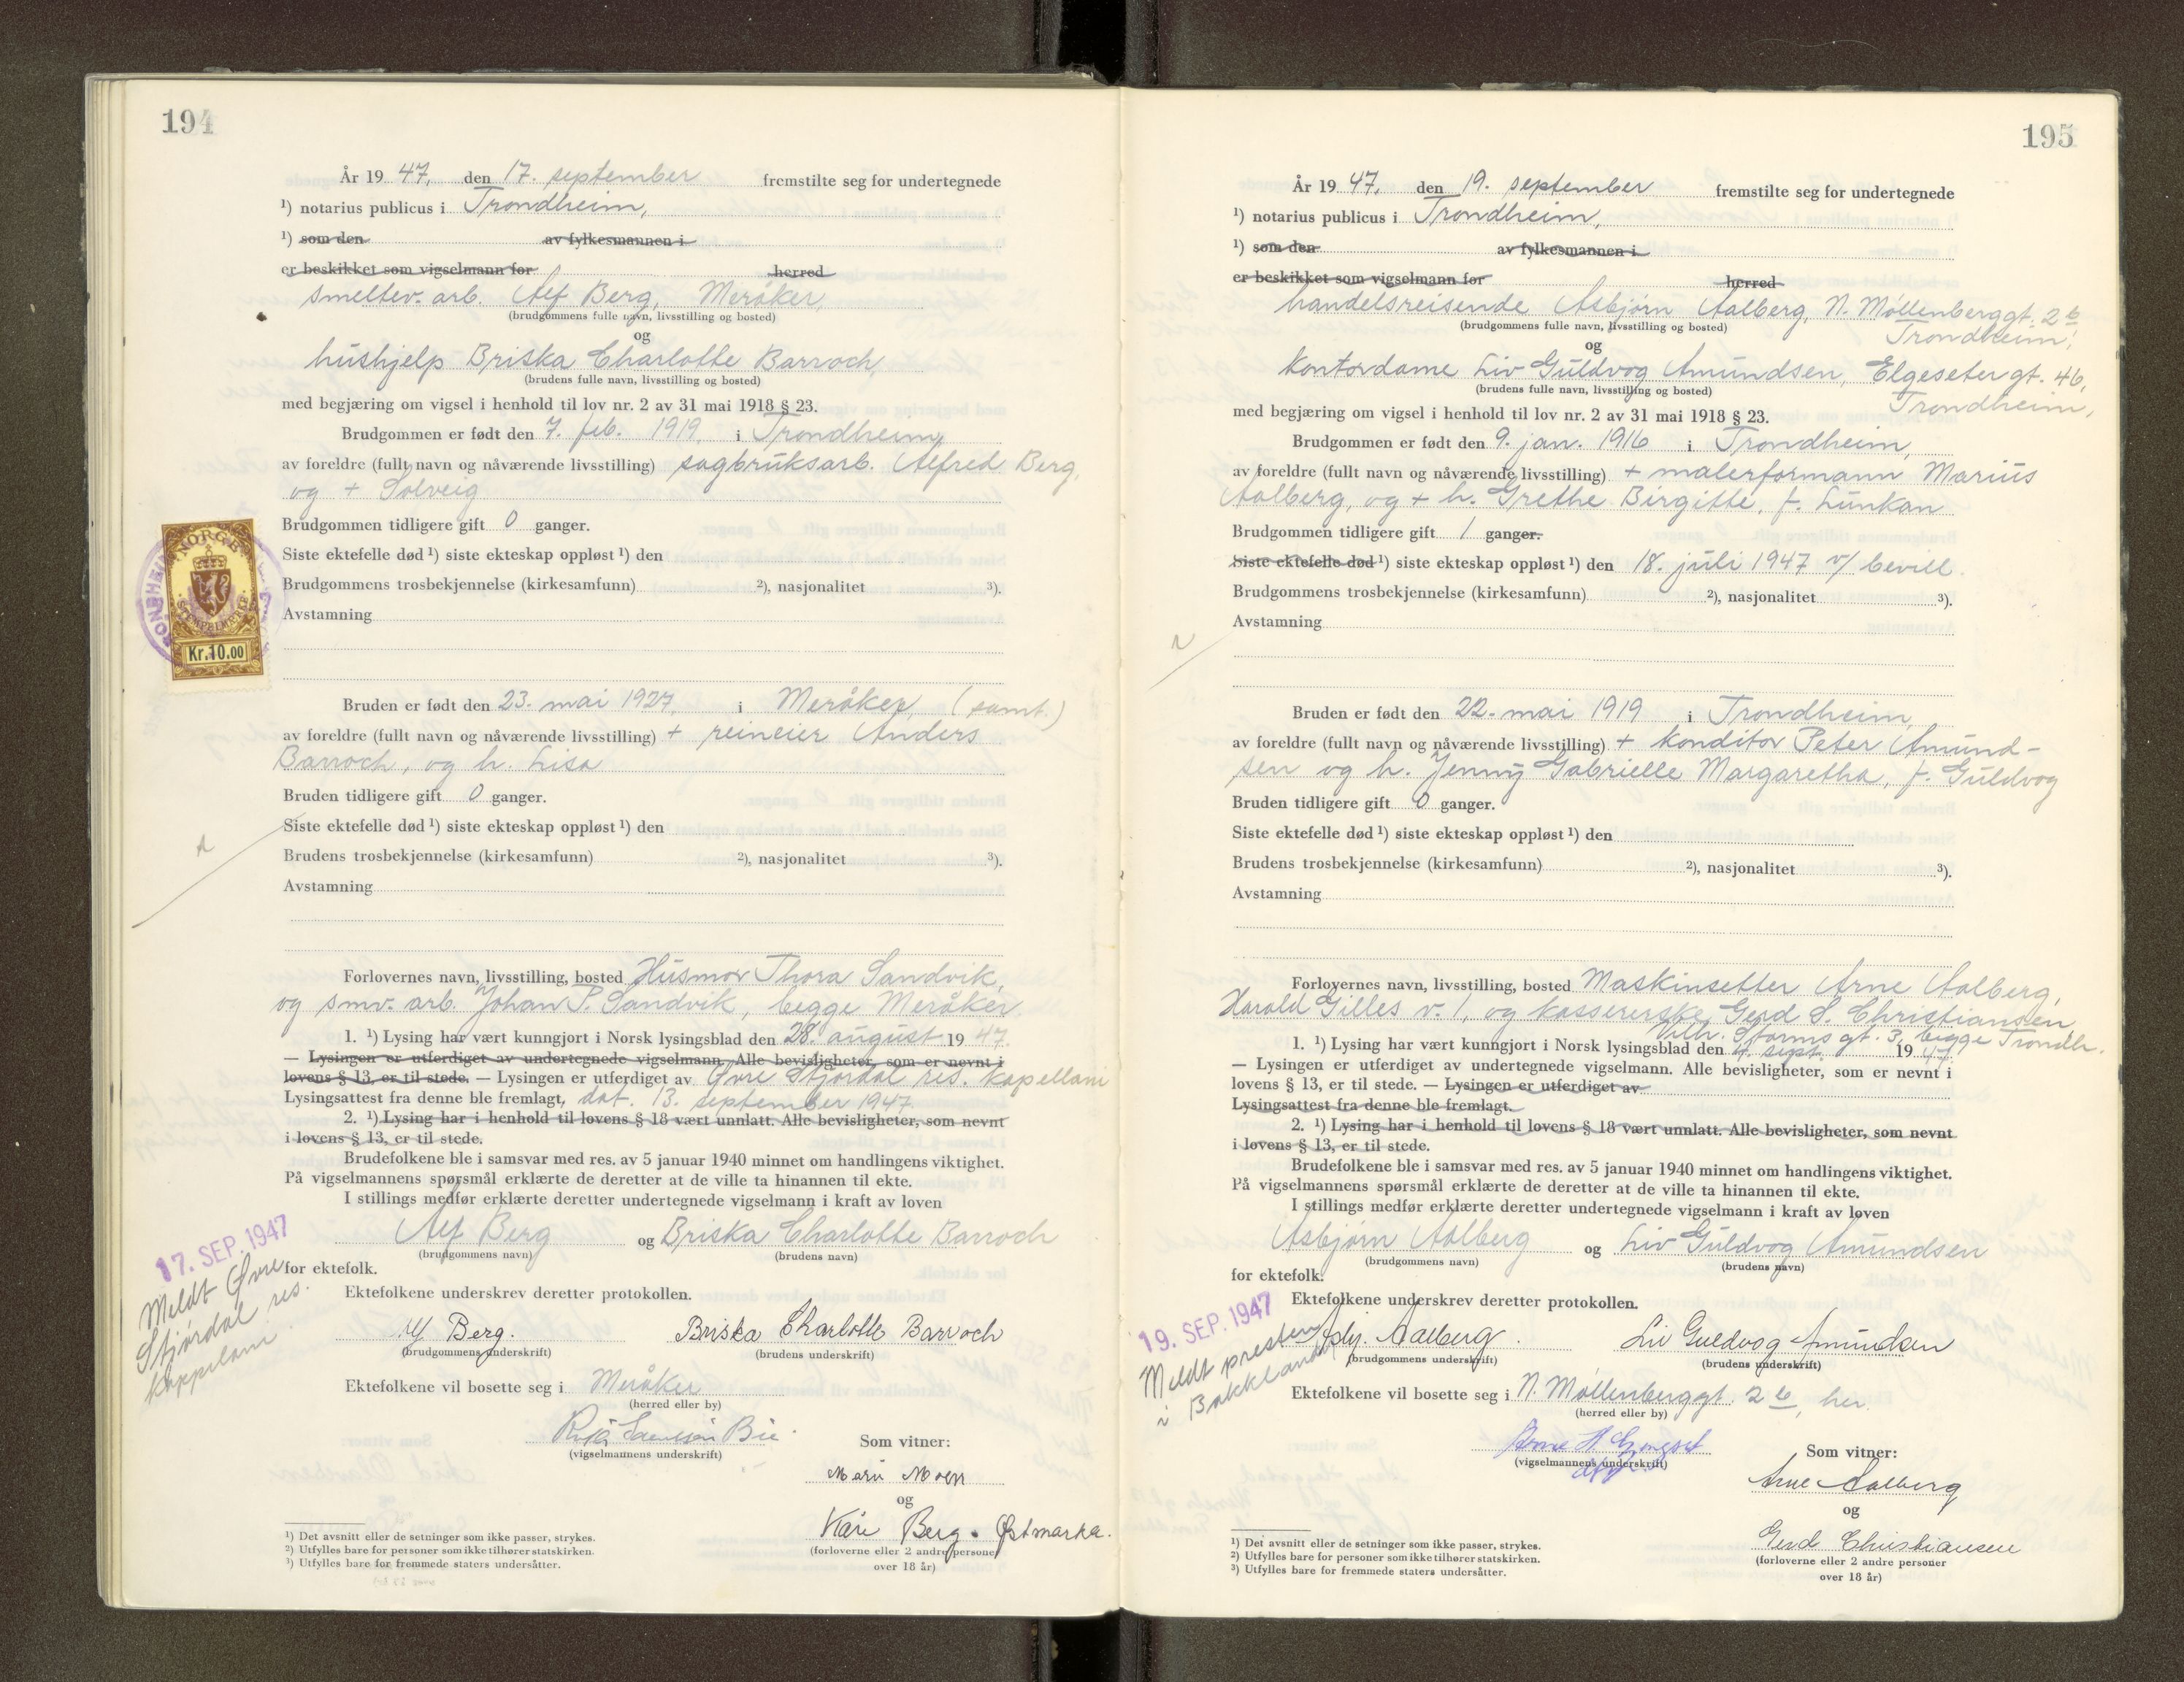 194
År 19 47, den 17. september fremstilte seg for undertegnede
¹) notarius publicus i Trondheim,
¹) som den av fylkesmannen i
er beskikket som vigselmann for herred
smeltev. arb. Alf Berg, Meråker,
(brudgommens fulle navn, livsstilling og bosted)
og
hushjelp Briska Charlotte Barroch,
(brudens fulle navn, livsstilling og bosted)
med begjæring om vigsel i henhold til lov nr. 2 av 31 mai 1918 § 23.
Brudgommen er født den 7. feb. 1919, i Trondheim,
av foreldre (fullt navn og nåværende livsstilling) sagbruksarb. Alfred Berg,
og + Solveig
Brudgommen tidligere gift 0 ganger.
Siste ektefelle død ¹) siste ekteskap oppløst ¹) den
Brudgommens trosbekjennelse (kirkesamfunn) ²), nasjonalitet ³).
Avstamning
NORGE
STEMPELMERKE
Kr.10.00
Bruden er født den 23. mai 1927, i Meråker, (samt.)
av foreldre (fullt navn og nåværende livsstilling) + reineier Anders
Barroch, og h. Lisa
Bruden tidligere gift 0 ganger.
Siste ektefelle død ¹) siste ekteskap oppløst ¹) den
Brudens trosbekjennelse (kirkesamfunn) ²), nasjonalitet ³).
Avstamning
Forlovernes navn, livsstilling, bosted Husmor Thora Sandvik,
og smv. arb. Johan P. Sandvik, begge Meråker
1. ¹) Lysing har vært kunngjort i Norsk lysingsblad den 28. august 19 47.
— Lysingen er utferdiget av undertegnede vigselmann. Alle bevisligheter, som er nevnt i
lovens § 13, er til stede. — Lysingen er utferdiget av Øvre Stjørdal res. kapellani
Lysingsattest fra denne ble fremlagt, dat. 13. september 1947.
2. ¹) Lysing har i henhold til lovens § 18 vært unnlatt. Alle bevisligheter, som nevnt
i lovens § 13, er til stede.
Brudefolkene ble i samsvar med res. av 5 januar 1940 minnet om handlingens viktighet.
På vigselmannens spørsmål erklærte de deretter at de ville ta hinannen til ekte.
I stillings medfør erklærte deretter undertegnede vigselmann i kraft av loven
Alf Berg og Briska Charlotte Barroch
(brudgommens navn) (brudens navn)
for ektefolk.
17. SEP. 1947
Meldt Øvre
Stjørdal res.
kappelani
Ektefolkene underskrev deretter protokollen.
Alf Berg. Briska Charlotte Barroch
(brudgommens underskrift) (brudens underskrift)
Ektefolkene vil bosette seg i Meråker
(herred eller by)
Bie
(vigselmannens underskrift)
Som vitner:
Moen
og
Kåre Berg. Østmarka.
(forloverne eller 2 andre personer
over 18 år)
¹) Det avsnitt eller de setninger som ikke passer, strykes.
²) Utfylles bare for personer som ikke tilhører statskirken.
³) Utfylles bare for fremmede staters undersåtter.
195
År 19 47, den 19. september fremstilte seg for undertegnede
¹) notarius publicus i Trondheim,
¹) som den av fylkesmannen i
er beskikket som vigselmann for herred
handelsreisende Asbjørn Aalberg, N. Møllenberggt. 2 b
Trondheim,
(brudgommens fulle navn, livsstilling og bosted)
og
kontordame Liv Guldvog Amundsen, Elgesetergt. 46,
Trondheim,
(brudens fulle navn, livsstilling og bosted)
med begjæring om vigsel i henhold til lov nr. 2 av 31 mai 1918 § 23.
Brudgommen er født den 9. jan. 1916 i Trondheim,
av foreldre (fullt navn og nåværende livsstilling) + malerformann Marius
Aalberg, og + h. Grethe Birgitte, f. Lunkan
Brudgommen tidligere gift 1 ganger.
Siste ektefelle død ¹) siste ekteskap oppløst ¹) den 18. juli 1947 v/ bevill.
Brudgommens trosbekjennelse (kirkesamfunn) ²), nasjonalitet ³).
Avstamning
Bruden er født den 22. mai 1919 i Trondheim,
av foreldre (fullt navn og nåværende livsstilling) + konditor Peter Amund-
sen og h. Jenny Gabrielle Margaretha, f. Guldvog
Bruden tidligere gift 0 ganger.
Siste ektefelle død ¹) siste ekteskap oppløst ¹) den
Brudens trosbekjennelse (kirkesamfunn) ²), nasjonalitet ³).
Avstamning
Forlovernes navn, livsstilling, bosted Maskinsetter Arne Aalberg,
Harald Gilles v. 1, og kassererske Gerd S. Christiansen,
Vilh. Storms gt. 3, begge Trondh.
1. ¹) Lysing har vært kunngjort i Norsk lysingsblad den 4. sept. 19 47.
— Lysingen er utferdiget av undertegnede vigselmann. Alle bevisligheter, som er nevnt i
lovens § 13, er til stede. — Lysingen er utferdiget av
Lysingsattest fra denne ble fremlagt.
2. ¹) Lysing har i henhold til lovens § 18 vært unnlatt. Alle bevisligheter, som nevnt
i lovens § 13, er til stede.
Brudefolkene ble i samsvar med res. av 5 januar 1940 minnet om handlingens viktighet.
På vigselmannens spørsmål erklærte de deretter at de ville ta hinannen til ekte.
I stillings medfør erklærte deretter undertegnede vigselmann i kraft av loven
Asbjørn Aalberg og Liv Guldvog Amundsen
(brudgommens navn) (brudens navn)
for ektefolk.
19. SEP. 1947
Meldt presten
i Bakklandet
Ektefolkene underskrev deretter protokollen.
Asbj. Aalberg. Liv Guldvog Amundsen
(brudgommens underskrift) (brudens underskrift)
Ektefolkene vil bosette seg i N. Møllenberggt. 2 b, her.
(herred eller by)
(vigselmannens underskrift)
Som vitner:
Arne Aalberg
og
Gerd Christiansen
(forloverne eller 2 andre personer
over 18 år)
¹) Det avsnitt eller de setninger som ikke passer, strykes.
²) Utfylles bare for personer som ikke tilhører statskirken.
³) Utfylles bare for fremmede staters undersåtter.